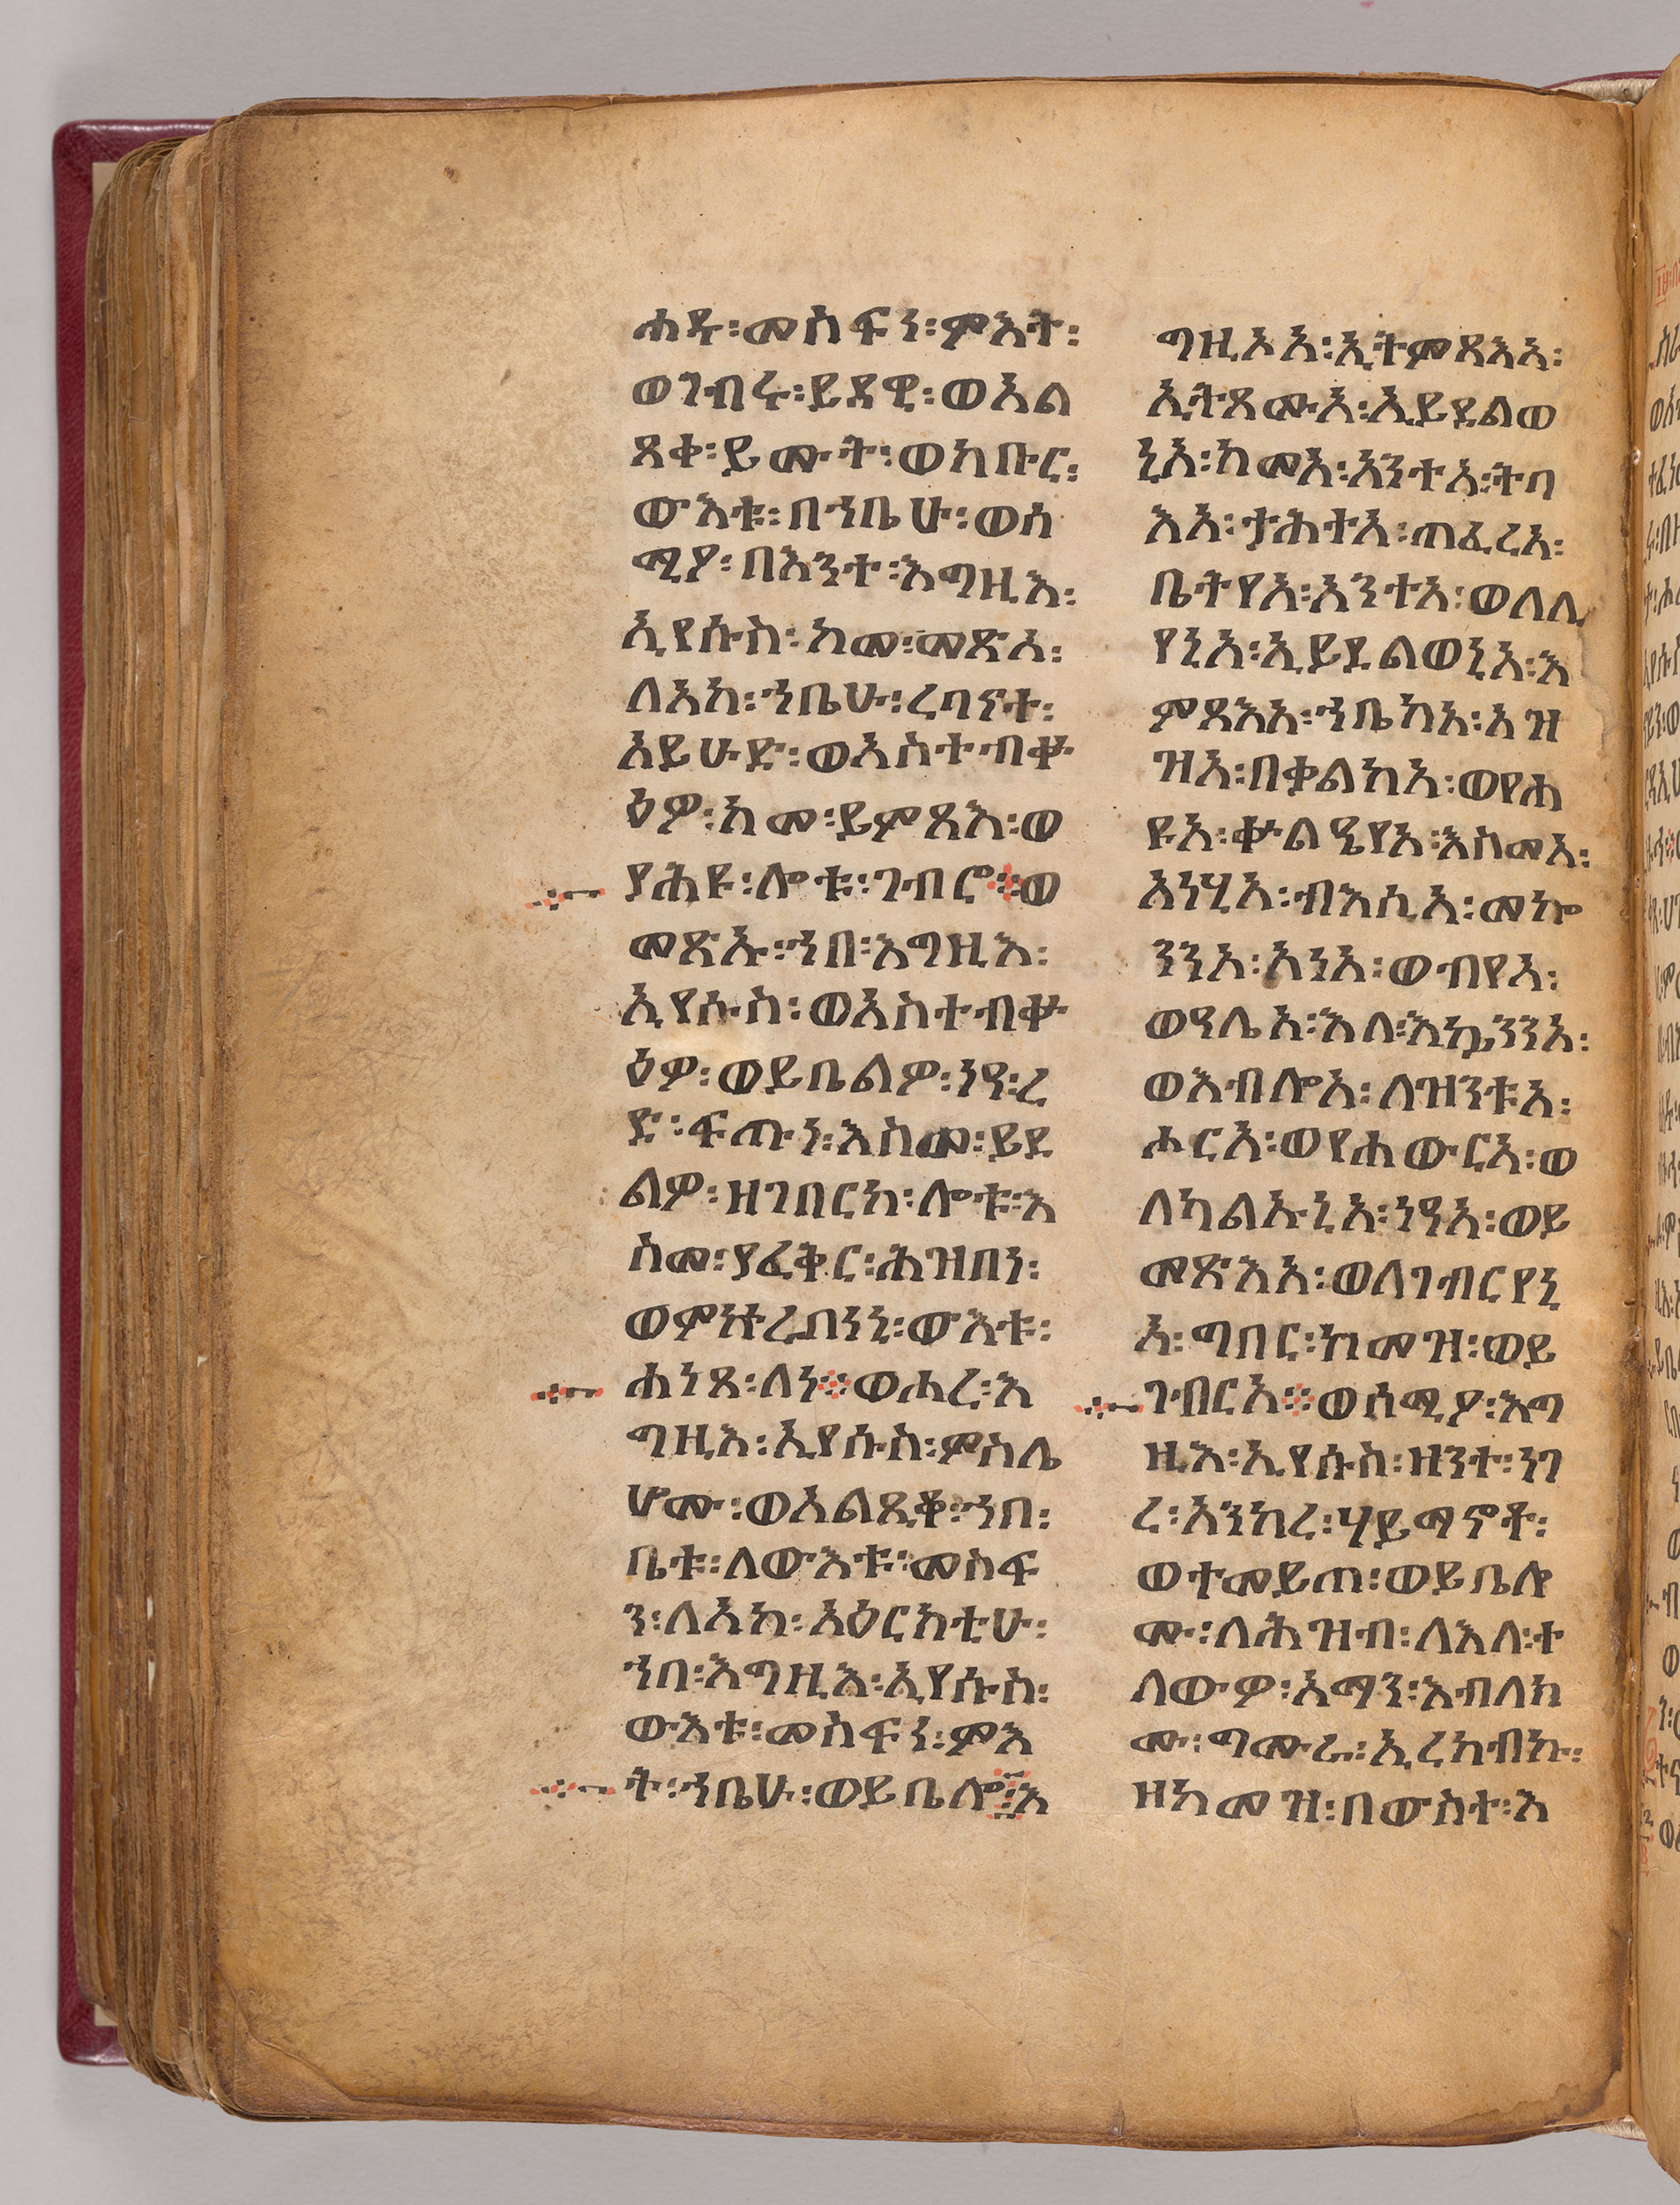 ሐዱ፡መስፍን፡ምእት፡
ወገብሩ፡ይደዊ፡ወአል
ጸቀ፡ይሙት፡ወክቡር፡
ውእቱ፡በኀቤሁ፡ወሰ
ሚዖ፡በእንተ፡እግዚእ፡
ኢየሱስ፡ከመ፡መጽአ፡
ለአከ፡ኀቤሁ፡ረባናተ፡
አይሁድ፡ወአስተብቍ
ዕዎ፡ከመ፡ይምጻእ፡ወ
ያሕዩ፡ሎቱ፡ገብሮ፨ወ
መጽኡ፡ኀበ፡እግዚእ፡
ኢየሱስ፡ወአስተብቍ
ዕዎ፡ወይቤልዎ፡ነዓ፡ረ
ድ፡ፍጡነ፡እስመ፡ይደ
ልዎ፡ዘገበርከ፡ሎቱ፡እ
ስመ፡ያፈቅር፡ሕዝበነ፡
ወምኵራበነኒ፡ውእቱ፡
ሐነጸ፡ለነ፨ወሖረ፡እ
ግዚእ፡ኢየሱስ፡ምስሌ
ሆሙ፡ወአልጺቆ፡ኀበ፡
ቤቱ፡ለውእቱ፡መስፍ
ን፡ለአከ፡አዕርክቲሁ፡
ኀበ፡እግዚእ፡ኢየሱስ፡
ውእቱ፡መስፍነ፡ምእ
ት፡ኀቤሁ፡ወይቤሎ፨እ
ግዚኦአ፡ኢትምጻእአ፡
ኢትጻሙአ፡ኢይደልወ
ኒአ፡ከመአ፡አንተአ፡ትባ
እአ፡ታሕተአ፡ጠፈረአ፡
ቤትየአ፡አንተአ፡ወለሊ
የኒአ፡ኢይደልወኒአ፡እ
ምጻእአ፡ኀቤከአ፡አዝ
ዝአ፡በቃልከአ፡ወየሐ
ዩአ፡ቍልዔየአ፡እስመአ፡
አነሂአ፡ብእሲአ፡መኰ
ንንአ፡አነአ፡ወብየአ፡
ወዓሌአ፡እለ፡እኴንንአ፡
ወእብሎአ፡ለዝንቱአ፡
ሖርአ፡ወየሐውርአ፡ወ
ለካልኡኒአ፡ነዓአ፡ወይ
መጽእአ፡ወለገብርየኒ
አ፡ግበር፡ከመዝ፡ወይ
ገብርአ፨ወሰሚዖ፡እግ
ዚእ፡ኢየሱስ፡ዘንተ፡ነገ
ረ፡አንከረ፡ሃይማኖቶ፡
ወተመይጠ፡ወይቤሎ
ሙ፡ለሕዝብ፡ለእለ፡ተ
ለውዎ፡አማን፡እብለክ
ሙ፡ግሙራ፡ኢረከብኩ፡
ዘከመዝ፡በውስተ፡እ